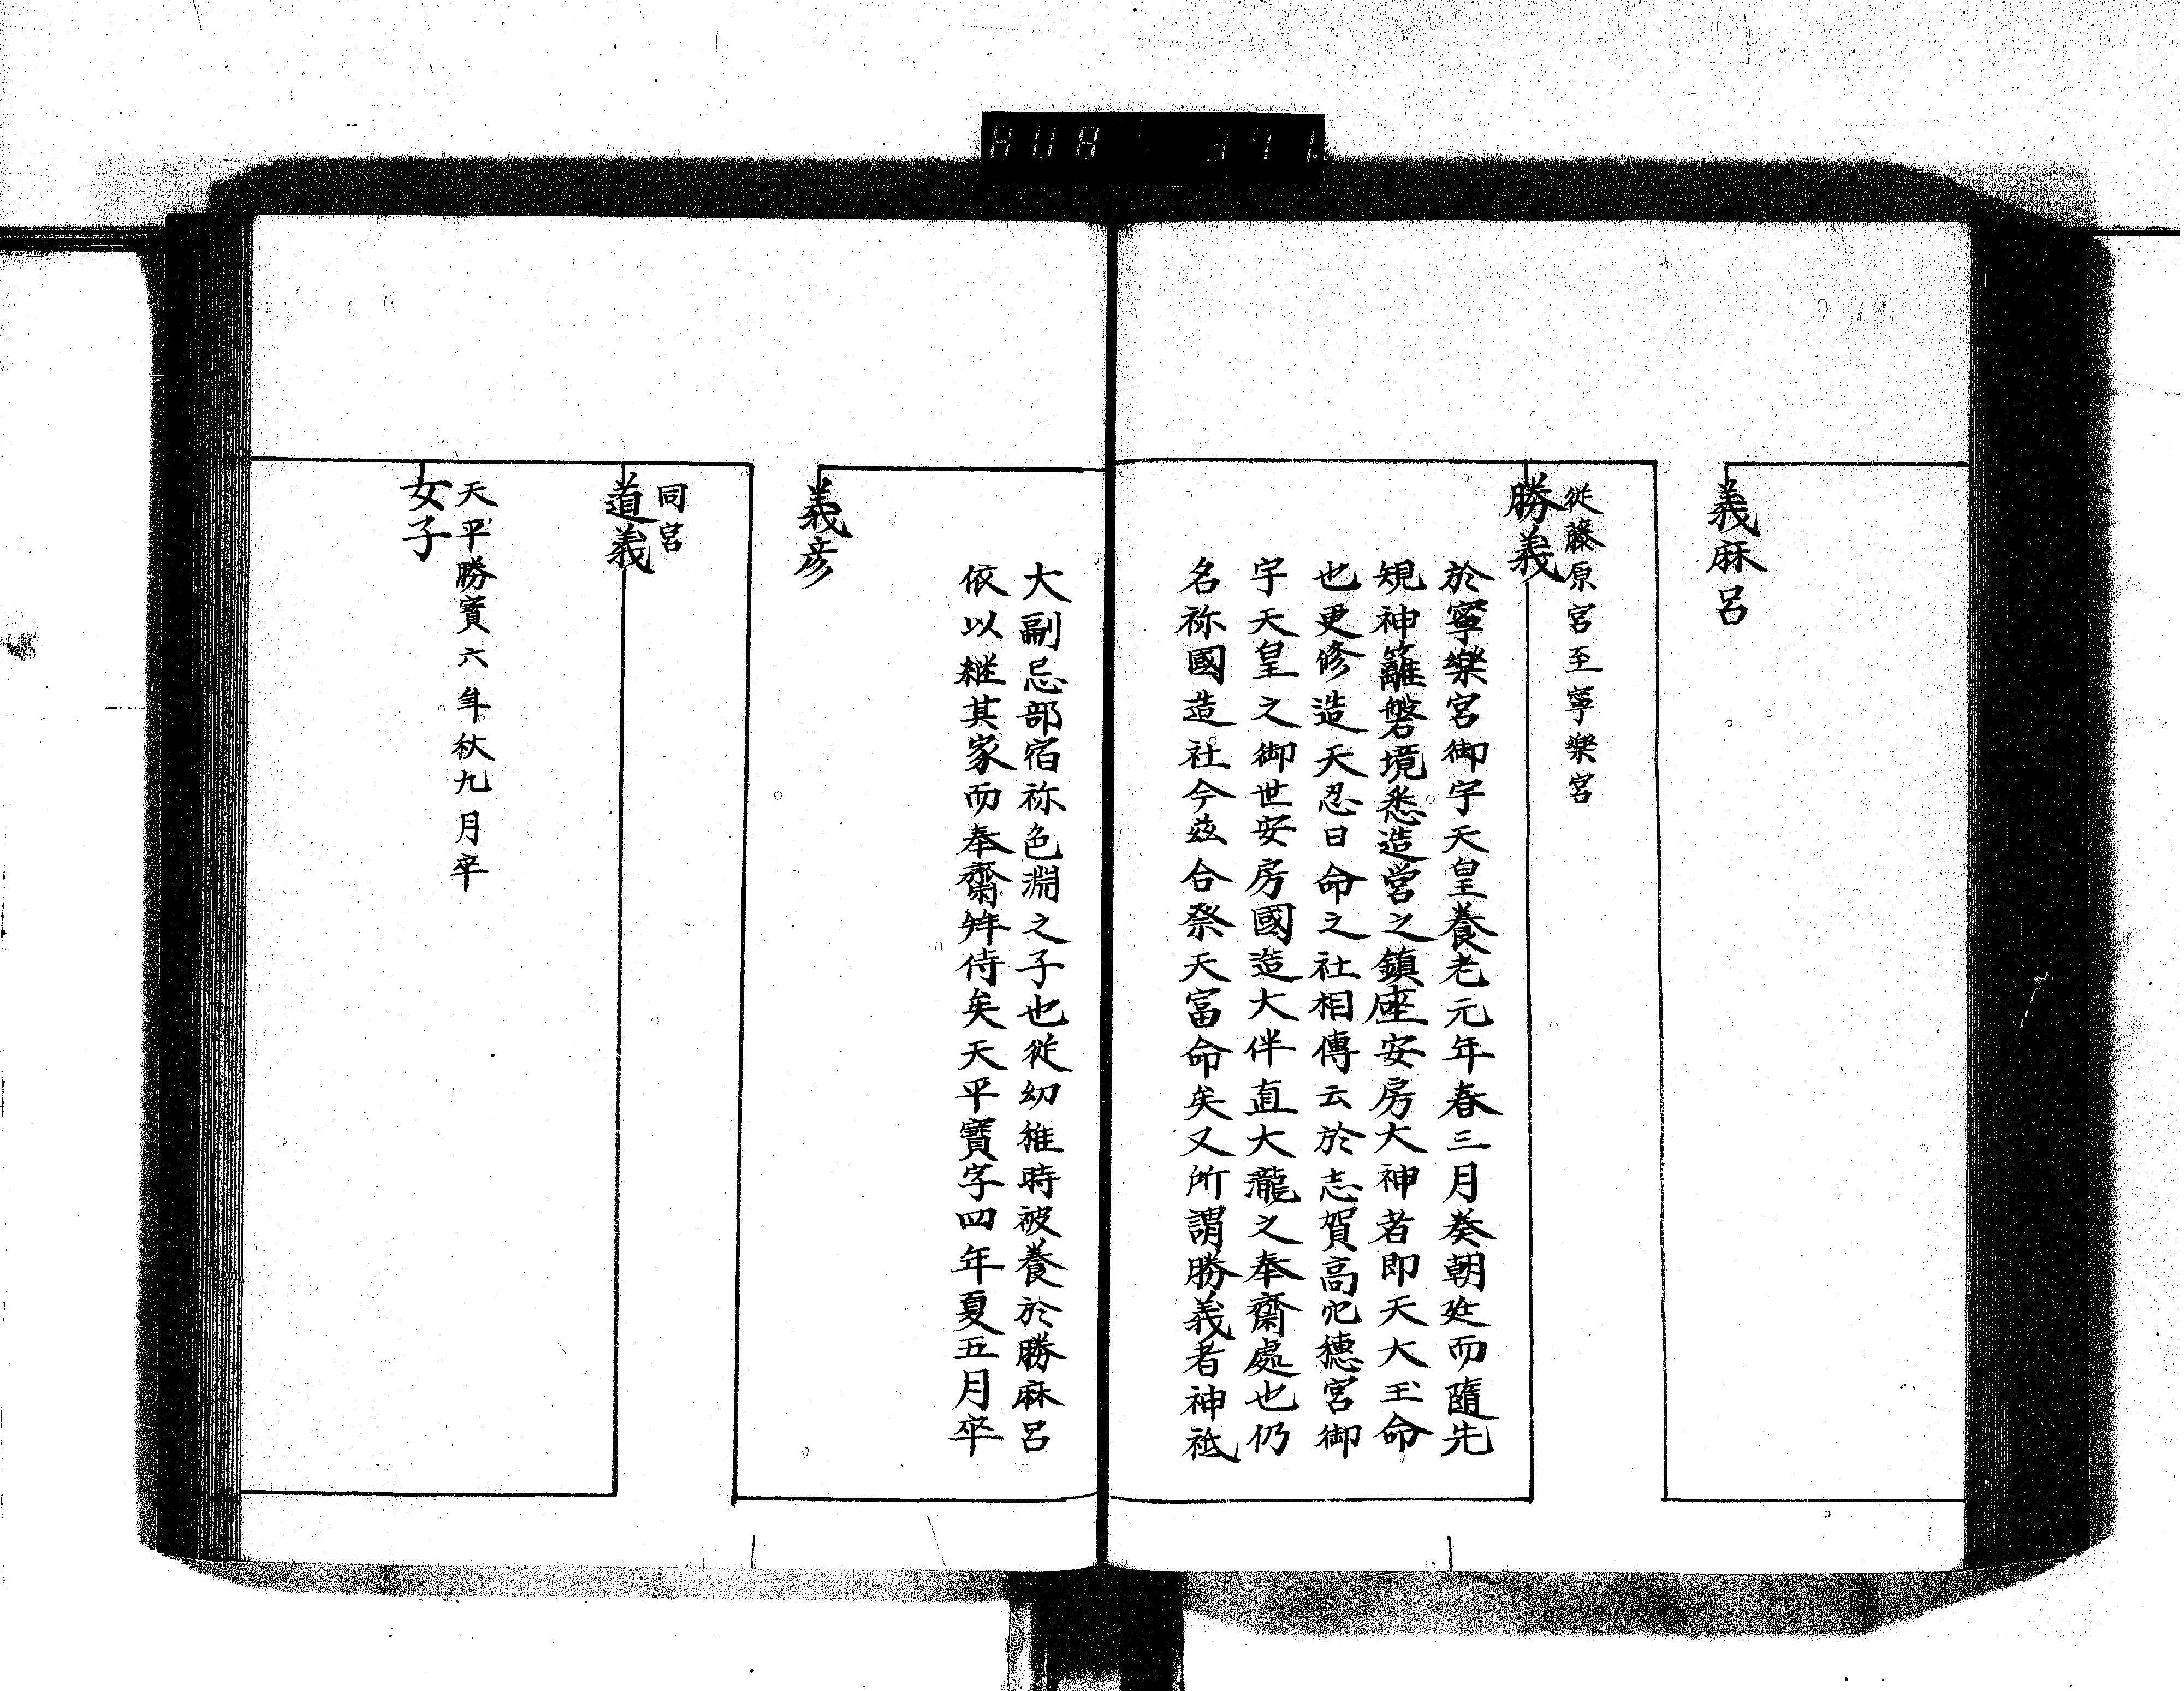 義麻呂
從藤原宮至寧樂宮
勝義
於寧樂宮御宇天皇養老元年春三月癸朝廷而隨先
規神籬磐境悉造営之鎮座安房大神者即天大玉命
也更修造天忍日命之社相傳云於志賀高穴穗宮御
宇天皇之御世安房國造大伴直大瀧之奉齋處也仍
名祢國造社今玆合祭天富命矣又所謂勝義者神祇
大副忌部宿祢色淵之子也從幼稚時被養於勝麻呂
依以継其家而奉齋拜侍矣天平寶字四年夏五月卒
義彦
同宮
道義
天平勝寶六年秋九月卒
女子